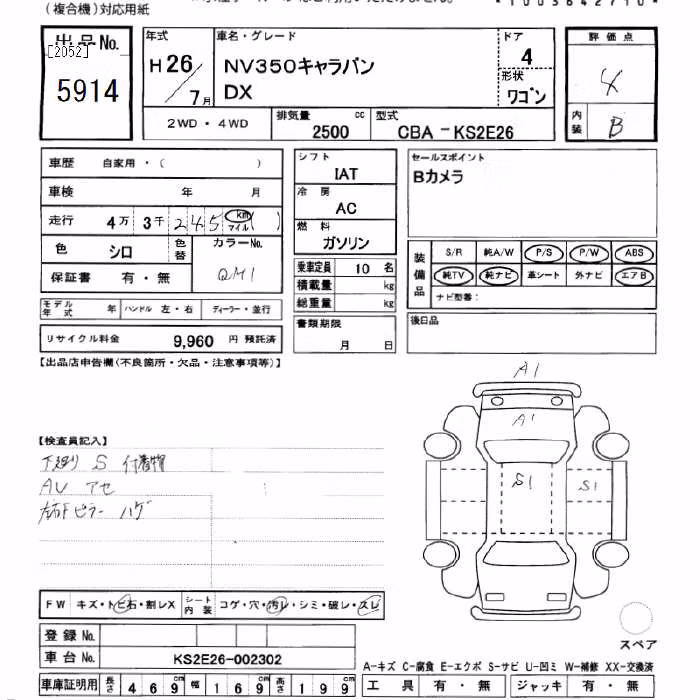 (複合機)対応用紙
*1003642710*
出品No.
[2052]
5914
年式
H26
7月
車名・グレード
NV350キャラバン
DX
ドア
4
形状
ワゴン
2WD・4WD
排気量
2500
cc
型式
CBA-KS2E26
評価点
4
内装
B
車歴 自家用・( )
車検 年 月
走行 4万3千245 km マイル ( )
色 シロ
色替
カラーNo.
QM1
保証書 有・無
モデル年式 年 ハンドル 左・右 ディーラー・並行
リサイクル料金 9,960 円 預託済
シフト
IAT
冷房
AC
燃料
ガソリン
乗車定員 10 名
積載量 kg
総重量 kg
書類期限
月 日
セールスポイント
Bカメラ
装備品
S/R 純A/W P/S P/W ABS
純TV 純ナビ 革シート 外ナビ エアB
ナビ型番:
後日品
【出品店申告欄(不良箇所・欠品・注意事項等)】
【検査員記入】
下廻り S 付着物
AU アセ
左右Fピラー ハゲ
A1
A1
S1
S1
スペア
FW キズ・トビ石・割レX
シート内装 コゲ・穴・汚レ・シミ・破レ・スレ
登録No.
車台No. KS2E26-002302
車庫証明用 長さ 469cm 幅 169cm 高さ 199cm
A-キズ C-腐食 E-エクボ S-サビ U-凹ミ W-補修 XX-交換済
工具 有・無 ジャッキ 有・無